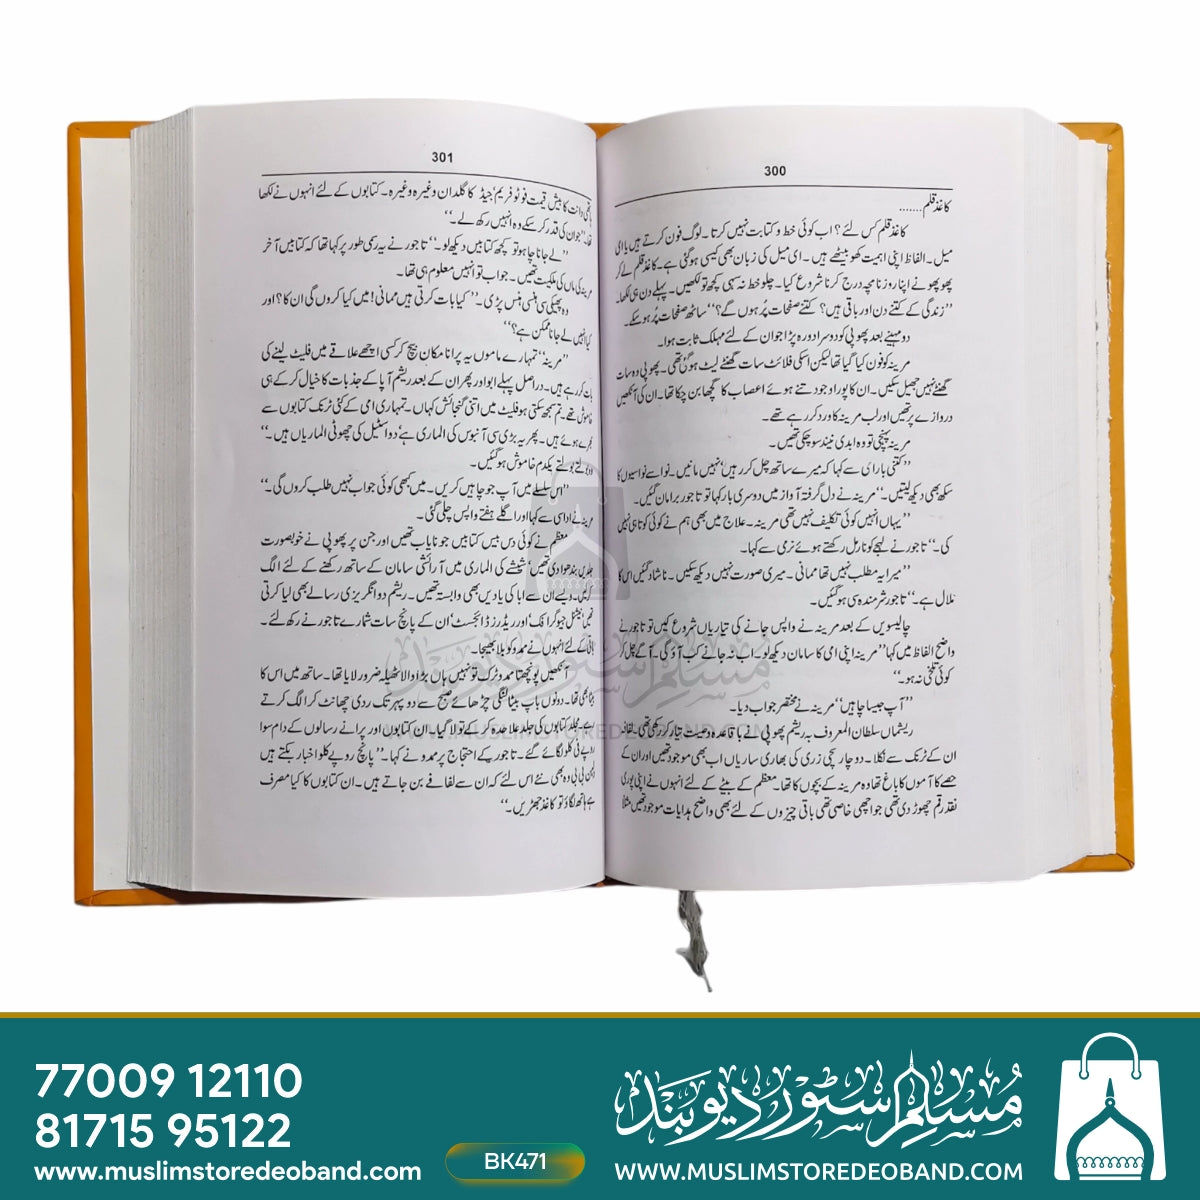 300
کاغذ قلم.......
کاغذ قلم کس لئے؟ اب کوئی خط و کتابت نہیں کرتا۔ لوگ فون کرتے ہیں یا ای
میل۔ الفاظ اپنی اہمیت کھو بیٹھے ہیں۔ ای میل کی زبان بھی کیسی ہوگئی ہے۔ کاغذ قلم لے کر
پھوپھو نے اپنا روزنامچہ درج کرنا شروع کیا۔ چلو خط نہ سہی کچھ تو لکھیں۔ پہلے دن ہی لکھا۔
”زندگی کے کتنے دن اور باقی ہیں؟ کتنے صفحات پُر ہوں گے؟“ ساٹھ صفحات پُر ہوسکے۔
دو مہینے بعد پھوپی کو دوسرا دورہ پڑا جو ان کے لئے مہلک ثابت ہوا۔
مرینہ کو فون کیا گیا تھا لیکن اسکی فلائٹ سات گھنٹے لیٹ ہوگئی تھی۔ پھوپی وہ سات
گھنٹے نہیں جھیل سکیں۔ ان کا پورا وجود تنے ہوئے اعصاب کا گچھا بن چکا تھا۔ ان کی آنکھیں
دروازے پر تھیں اور لب مرینہ کا ورد کر رہے تھے۔
مرینہ پہنچی تو وہ ابدی نیند سوچکی تھیں۔
”کتنی بار ان سے کہا کہ میرے ساتھ چل کر رہیں‘ نہیں مانیں۔ نواسے نواسیوں کا
سکھ بھی دیکھ لیتیں۔“ مرینہ نے دل گرفتہ آواز میں دوسری بار کہا تو تاجور برا مان گئیں۔
”یہاں انہیں کوئی تکلیف نہیں تھی مرینہ۔ علاج میں بھی ہم نے کوئی کوتاہی نہیں
کی۔“ تاجور نے لہجے کو نارمل رکھتے ہوئے نرمی سے کہا۔
”میرا یہ مطلب نہیں تھا ممانی۔ میری صورت نہیں دیکھ سکیں۔ ناشاد گئیں اس کا
ملال ہے۔“ تاجور شرمندہ سی ہوگئیں۔
چالیسویں کے بعد مرینہ نے واپس جانے کی تیاریاں شروع کیں تو تاجور نے
واضح الفاظ میں کہا ”مرینہ اپنی امی کا سامان دیکھ لو۔ اب نہ جانے کب آؤ گی۔ آگے چل کر
کوئی تلخی نہ ہو۔“
”آپ جیسا چاہیں“ مرینہ نے مختصر جواب دیا۔
ریشماں سلطان المعروف بہ ریشم پھوپی نے باقاعدہ وصیت تیار کر رکھی تھی۔ لفافہ
ان کے ٹرنک سے نکلا۔ دو چار بچی زری کی بھاری ساریاں اب بھی موجود تھیں اور ان کے
حصے کا آموں کا باغ تھا وہ مرینہ کے بچوں کا تھا۔ معظم کے بیٹے کے لئے انہوں نے اپنی پوری
نقد رقم چھوڑ دی تھی جو اچھی خاصی تھی باقی چیزوں کے لئے بھی واضح ہدایات موجود تھیں مثلاً
301
ہاتھی دانت کا بیش قیمت فوٹو فریم‘ جیڈ کا گلدان وغیرہ وغیرہ۔ کتابوں کے لئے انہوں نے لکھا
تھا۔ ”جو ان کی قدر کر سکے وہ انہیں رکھ لے۔“
”لے جانا چاہو تو کچھ کتابیں دیکھ لو۔“ تاجور نے یہ رسمی طور پر کہا تھا کہ کتابیں آخر
مرینہ کی ماں کی ملکیت تھیں۔ جواب تو انہیں معلوم ہی تھا۔
وہ پھیکی سی ہنسی ہنس پڑی۔ ”کیا بات کرتی ہیں ممانی! میں کیا کروں گی ان کا؟ اور
کیا انہیں لے جانا ممکن ہے؟“
”مرینہ“ تمہارے ماموں یہ پرانا مکان بیچ کر کسی اچھے علاقے میں فلیٹ لینے کی
بات کر رہے ہیں۔ دراصل پہلے ابو اور پھر ان کے بعد ریشم آپا کے جذبات کا خیال کر کے ہی
خاموش تھے۔ تم سمجھ سکتی ہو فلیٹ میں اتنی گنجائش کہاں۔ تمہاری امی کے کئی ٹرنک کتابوں سے
بھرے ہوئے ہیں۔ پھر یہ بڑی سی آبنوس کی الماری ہے‘ دو اسٹیل کی چھوٹی الماریاں ہیں۔“
وہ بولتے بولتے یکدم خاموش ہوگئیں۔
”اس سلسلے میں آپ جو چاہیں کریں۔ میں کبھی کوئی جواب نہیں طلب کروں گی۔“
مرینہ نے اداسی سے کہا اور اگلے ہفتے واپس چلی گئی۔
معظم نے کوئی دس بیس کتابیں جو نایاب تھیں اور جن پر پھوپی نے خوبصورت
جلدیں بندھوا دی تھیں‘ شیشے کی الماری میں آرائشی سامان کے ساتھ رکھنے کے لئے الگ
کیں۔ ویسے ان سے ابا کی یادیں بھی وابستہ تھیں۔ ریشم دو انگریزی رسالے بھی لیا کرتی
تھیں‘ نیشنل جیوگرافک اور ریڈرز ڈائجسٹ‘ ان کے پانچ سات شمارے تاجور نے رکھ لئے۔
باقی کے لئے انہوں نے ممدو کو بلا بھیجا۔
آنکھیں پونچھتا ممدو ٹرک تو نہیں ہاں بڑا والا ٹھیلہ ضرور لایا تھا۔ ساتھ میں اس کا
بیٹا بھی تھا۔ دونوں باپ بیٹا لنگی چڑھائے صبح سے دو پہر تک ردی چھانٹ کر الگ کرتے
رہے۔ مجلد کتابوں کی جلد علاحدہ کر کے تولا گیا۔ کتابوں اور پرانے رسالوں کے دام سوا
روپے فی کلو لگائے گئے۔ تاجور کے احتجاج پر ممدو نے کہا۔ ”پانچ روپے کلو اخبار بکتے ہیں
لیکن بی بی وہ بھی نئے اس لئے کہ ان سے لفافے بن جاتے ہیں۔ ان کتابوں کا کیا مصرف
ہے ہاتھ لگاؤ تو کاغذ جھڑیں۔“
مسلم سٹور دیوبند
WWW.MUSLIMSTOREDEOBAND.COM
77009 12110
81715 95122
www.muslimstoredeoband.com
BK471
مسلم سٹور دیوبند
WWW.MUSLIMSTOREDEOBAND.COM